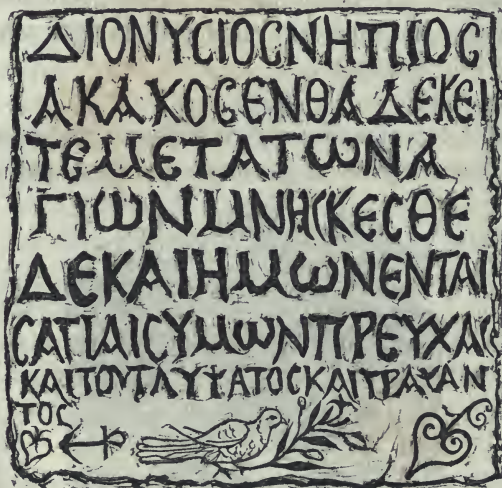 ΔΙΟΝΥϹΙΟϹΝΗΠΙΟϹ
ΑΚΑΚΟϹΕΝΘΑΔΕΚΕΙ
ΤΕΜΕΤΑΤωΝΑ
ΓΙωΝΜΝΗϹΚΕϹΘΕ
ΔΕΚΑΙΗΜωΝΕΝΤΑΙ
ϹΑΓΙΑΙϹΥΜωΝΠΡΕΥΧΑΙϹ
ΚΑΙΤΟΥΓΛΥΨΑΤΟϹΚΑΙΓΡΑΨΑΝ
ΤΟϹ